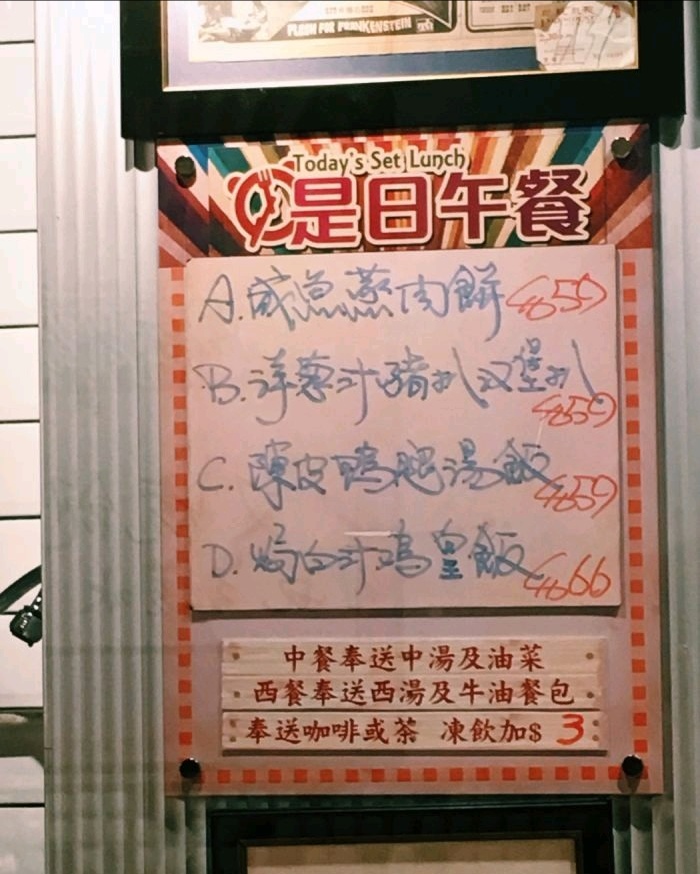 FLESH FOR FRANKENSTEIN
Today's Set Lunch
是日午餐
A.咸魚蒸肉餅 $59
B.洋葱汁豬扒汉堡扒 $59
C.陳皮鴨腿湯飯 $59
D.焗白汁鸡皇飯 $66
中餐奉送中湯及油菜
西餐奉送西湯及牛油餐包
奉送咖啡或茶 凍飲加$ 3